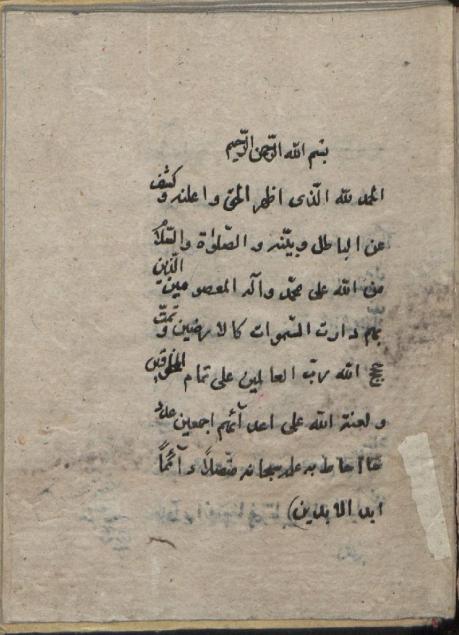 بسم الله الرّحمن الرّحیم
الحمد للّه الّذی اظهر الحق و اعلنه و کشف
عن الباطل و بیّنه و الصّلوة و السّلام
من الله علی محمّد و آله المعصومین الّذین
بهم دارت السّموات کالارضین و تمّت
حجج الله ربّ العالمین علی تمام المخلوقین
و لعنة الله علی اعدآئهم اجمعین عدد
ما احاط به علم سبحانه متّصلاً دآئماً
ابد الآبدین)